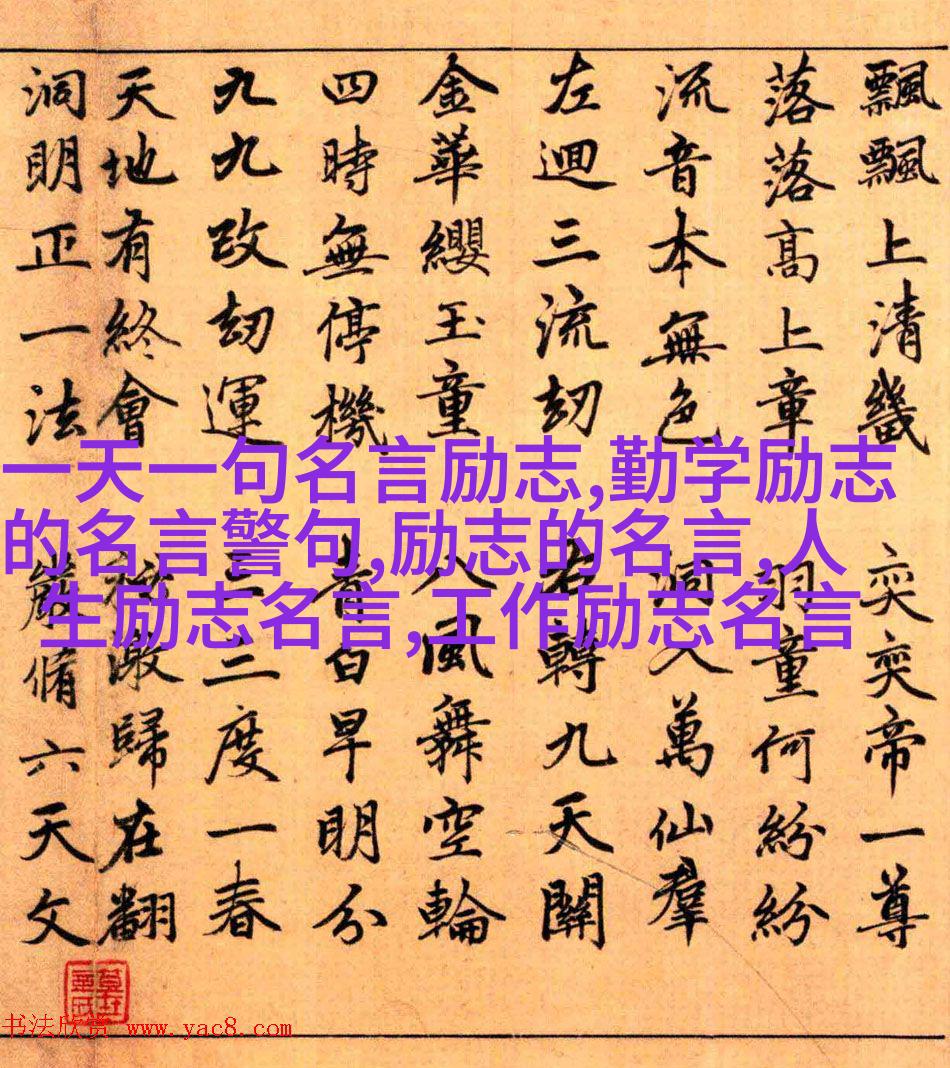 飄飄上清畿 奕奕帝一尊
落落高上章 羽童何紛紛
流音本無色 洞入萬仙羣
左迴三流刼 右轉九天關
金華纓玉童 八風舞空輪
四時無停機 青白早明分
九九改刼運 三三度一春
天地有終會 激歸在翻
洞明正一法 嚴脩六天文
一天一句名言励志,勤学励志
的名言警句,励志的名言,人
生励志名言,工作励志名言
书法欣赏 www.yac8.com